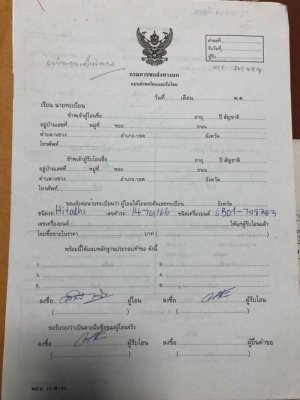 คำขอที่
รับวันที่
ผู้รับ
กรมการขนส่งทางบก
แบบคำขอโอนและรับโอน
วันที่ เดือน พ.ศ.
เรียน นายทะเบียน
ข้าพเจ้าผู้โอนชื่อ อายุ ปี สัญชาติ
อยู่บ้านเลขที่ หมู่ที่ ซอย ถนน
ตำบล/แขวง อำเภอ/เขต จังหวัด
โทรศัพท์
ข้าพเจ้าผู้รับโอนชื่อ อายุ ปี สัญชาติ
อยู่บ้านเลขที่ หมู่ที่ ซอย ถนน
ตำบล/แขวง อำเภอ/เขต จังหวัด
โทรศัพท์
ขอแจ้งต่อนายทะเบียนว่า ผู้โอนได้โอนรถคันเลขทะเบียน จังหวัด
ชนิดรถ Hitachi เลขตัวรถ ชนิดเครื่องยนต์
เลขเครื่องยนต์ ให้แก่ผู้รับโอนแล้ว
โดยซื้อขายในราคา บาท ( )
พร้อมนี้ได้แนบหลักฐานประกอบคำขอ ดังนี้
1. 2.
3. 4.
5. 6.
ลงชื่อ ผู้โอน ลงชื่อ ผู้รับโอน
( ) ( )
ขอรับรองว่าเป็นลายมือชื่อของผู้โอนจริง
ลงชื่อ ผู้รับโอน ลงชื่อ ผู้ยื่นคำขอ
( ) ( )